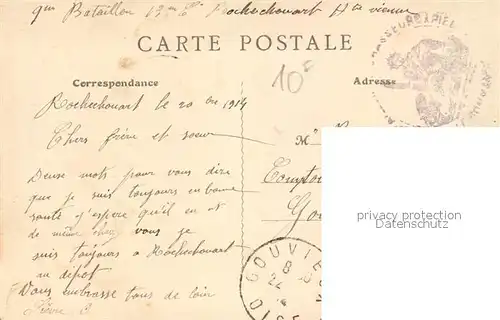 9me Bataillon 12me Cie Rochechouart Hte vienne
CARTE POSTALE
10c
Correspondance
Adresse
Rochechouart le 20 bre 1914
Chers frère et soeur
Mr
Deuse mots pour vous dire
que je suis toujours en bonne
santé j'espere qu'il en est
de même chez vous je
suis toujours a Rochechouart
au dépot
Vous embrasse tous de loin
privacy protection
Datenschutz
GOUVIE
8
22
OISE